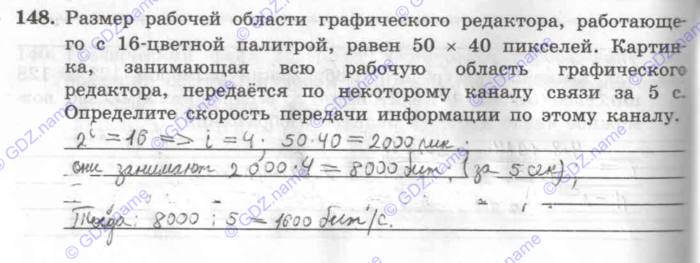 148. Размер рабочей области графического редактора, работающе-
го с 16-цветной палитрой, равен 50 × 40 пикселей. Картин-
ка, занимающая всю рабочую область графического
редактора, передаётся по некоторому каналу связи за 5 с.
Определите скорость передачи информации по этому каналу.
2^i = 16 => i = 4. 50·40 = 2000 пик.
они занимают 2000·4 = 8000 бит, (за 5 сек)
Тогда: 8000 : 5 = 1600 бит/с.
© GDZ.name